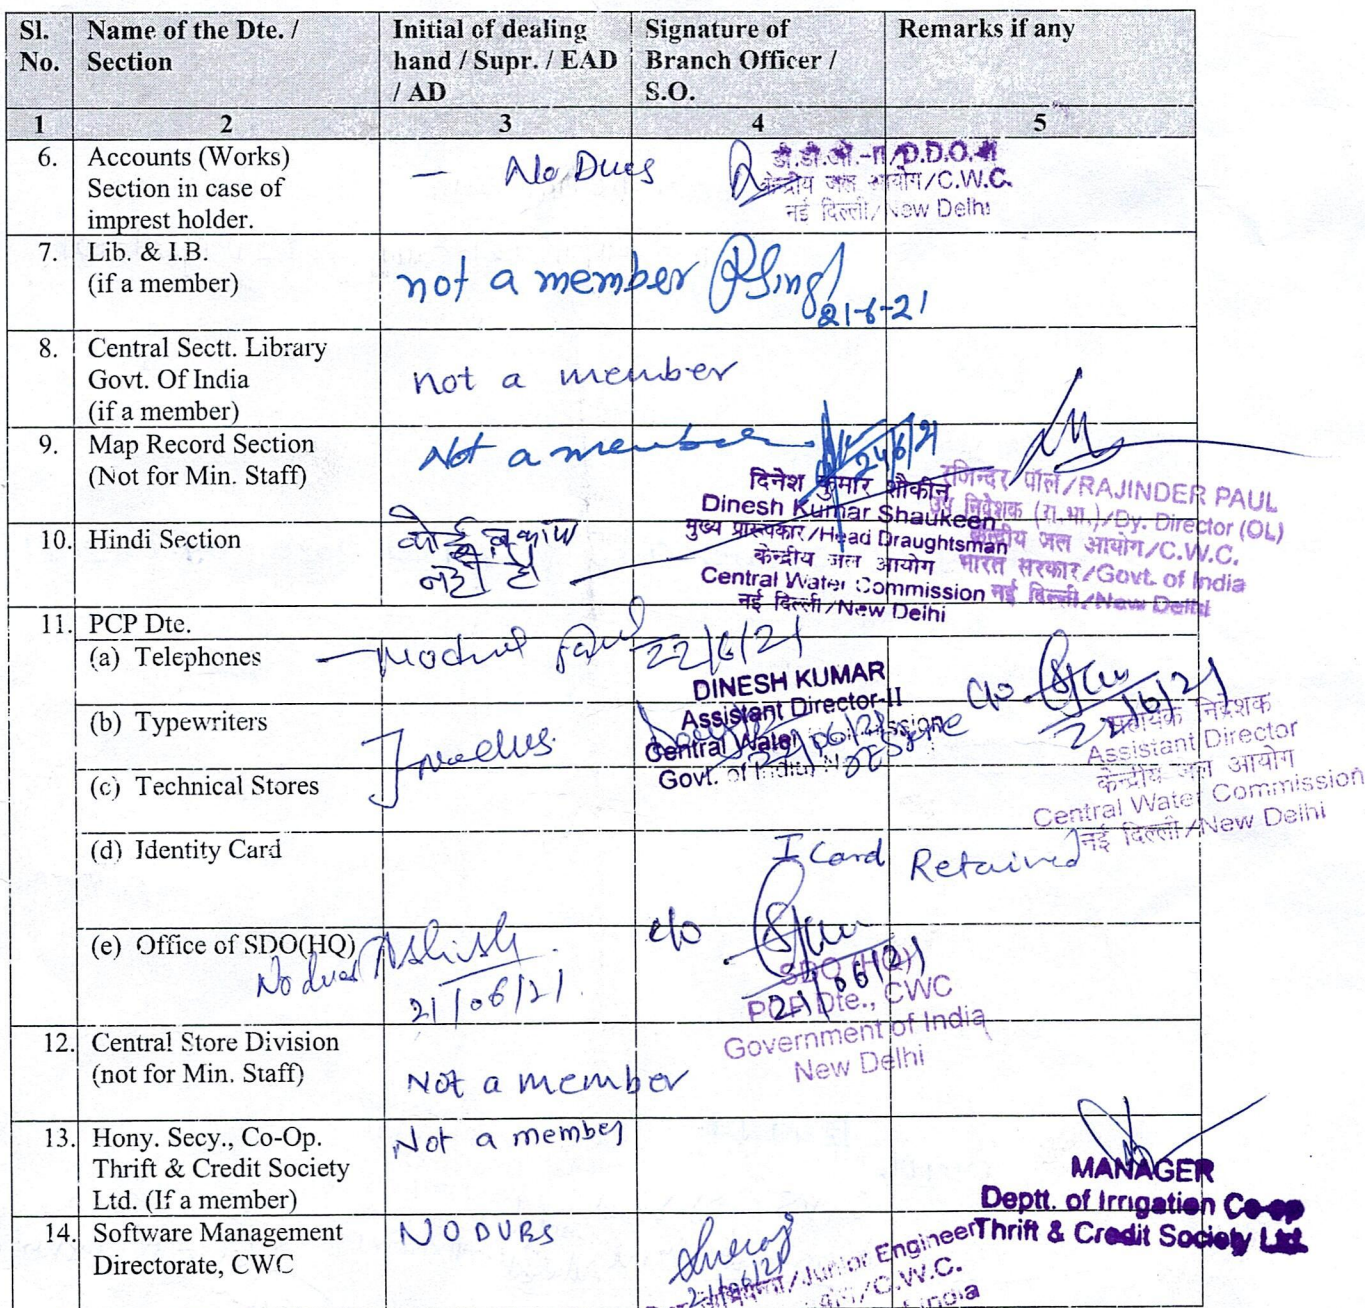 Sl. No.
Name of the Dte. / Section
Initial of dealing hand / Supr. / EAD / AD
Signature of Branch Officer / S.O.
Remarks if any
1 2 3 4 5
6. Accounts (Works)
Section in case of
imprest holder.
— No Dues
D.D.O.
केन्द्रीय जल आयोग/C.W.C.
नई दिल्ली/New Delhi
7. Lib. & I.B.
(if a member)
not a member
21-6-21
8. Central Sectt. Library
Govt. Of India
(if a member)
not a member
9. Map Record Section
(Not for Min. Staff)
Not a member
24/6/21
दिनेश कुमार शौकीन
Dinesh Kumar Shaukeen
मुख्य प्रारूपकार/Head Draughtsman
केन्द्रीय जल आयोग
Central Water Commission
नई दिल्ली/New Delhi
राजिन्दर पॉल/RAJINDER PAUL
उप निदेशक (रा.भा.)/Dy. Director (OL)
केन्द्रीय जल आयोग/C.W.C.
भारत सरकार/Govt. of India
नई दिल्ली/New Delhi
10. Hindi Section
कोई बकाया
नहीं है
11. PCP Dte.
(a) Telephones
22/6/21
DINESH KUMAR
Assistant Director-II
Central Water Commission
Govt. of India
(b) Typewriters
सहायक निदेशक
Assistant Director
केन्द्रीय जल आयोग
Central Water Commission
नई दिल्ली/New Delhi
(c) Technical Stores
(d) Identity Card
I Card Retained
(e) Office of SDO(HQ)
No dues Ashish
21/06/21
21/06/21
SDO (HQ)
PCP Dte., CWC
Government of India
New Delhi
12. Central Store Division
(not for Min. Staff)
Not a member
13. Hony. Secy., Co-Op.
Thrift & Credit Society
Ltd. (If a member)
Not a member
MANAGER
Deptt. of Irrigation Co-op
Thrift & Credit Society Ltd.
14. Software Management
Directorate, CWC
NO DUES
21/06/21
/Junior Engineer
/C.W.C.